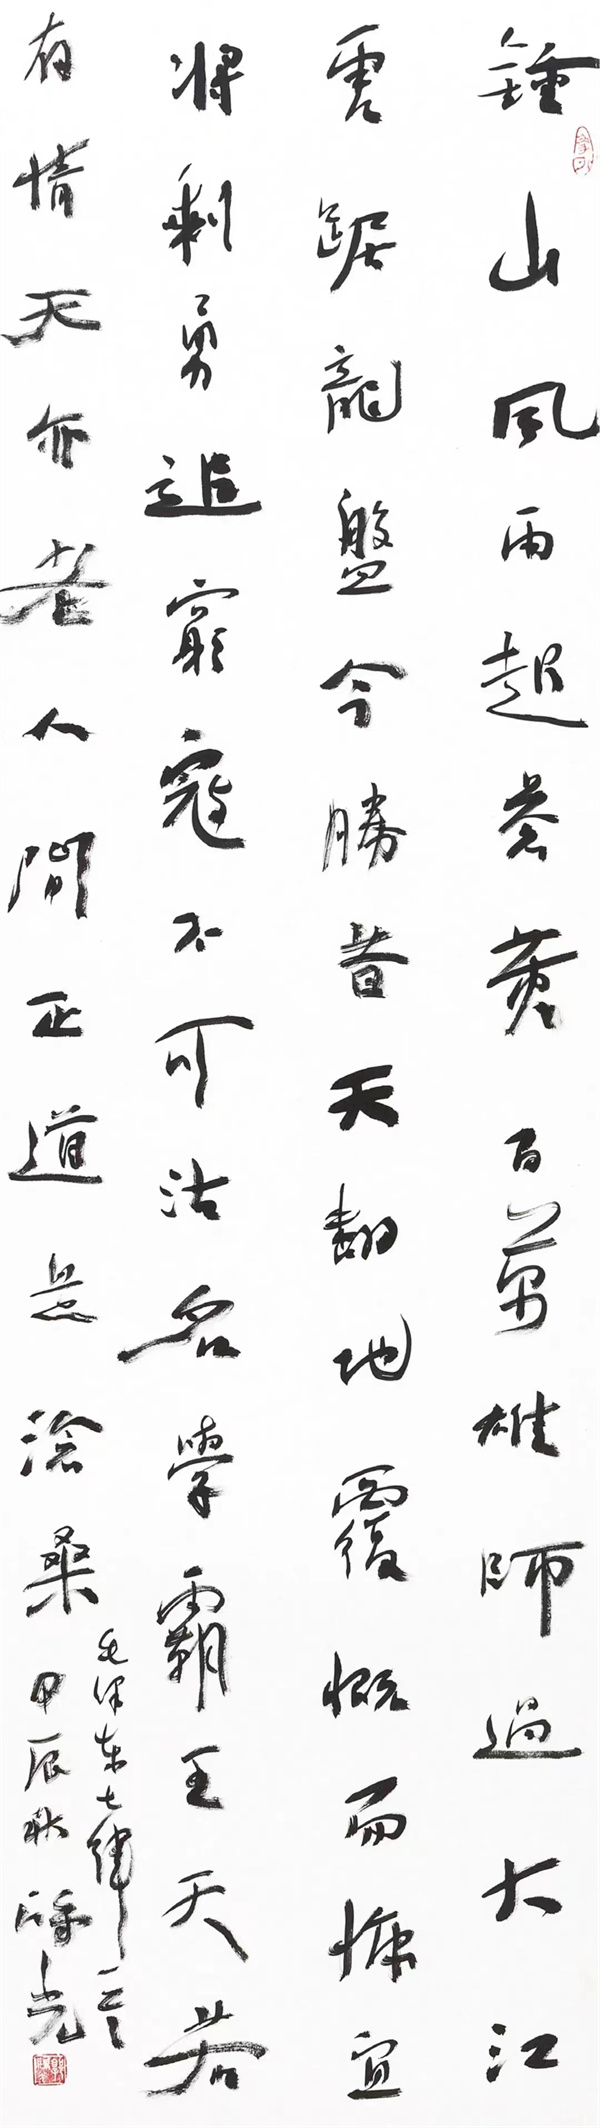 鍾山風雨起蒼黄百萬雄師過大江
虎踞龍盤今勝昔天翻地覆慨而慷宜
將剩勇追窮寇不可沽名學霸王天若
有情天亦老人間正道是滄桑
毛澤東七律
甲辰秋 光